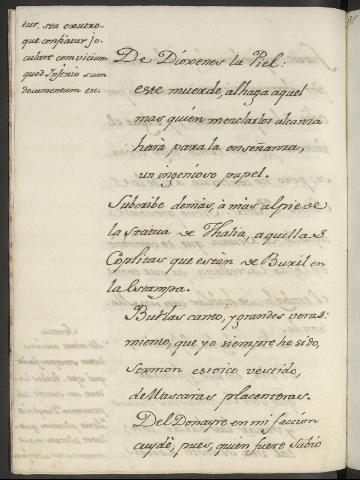 tur, sea exutro-
que conflatur jo-
culare com vicium
quod Infenio sum
documentum est.
De Dioxenes la Piel:
este muerde, alhaga aquel
mas quien mezclarlos alcanza
hará, para la enseñanza,
un ingenioso papel.
Subcribe demàs, à màs al pie de
la Statua de Thalia, aquellas
Coplitas que estàn de Buxil en
la Estampa.
Burlas canto, y grandes veras
miento; que yo siempre he sido,
Sermon estoico vestido,
de Mascaras placenteras.
Del Donayre en mi faccion
cuydè, pues, quien fuere Sabio